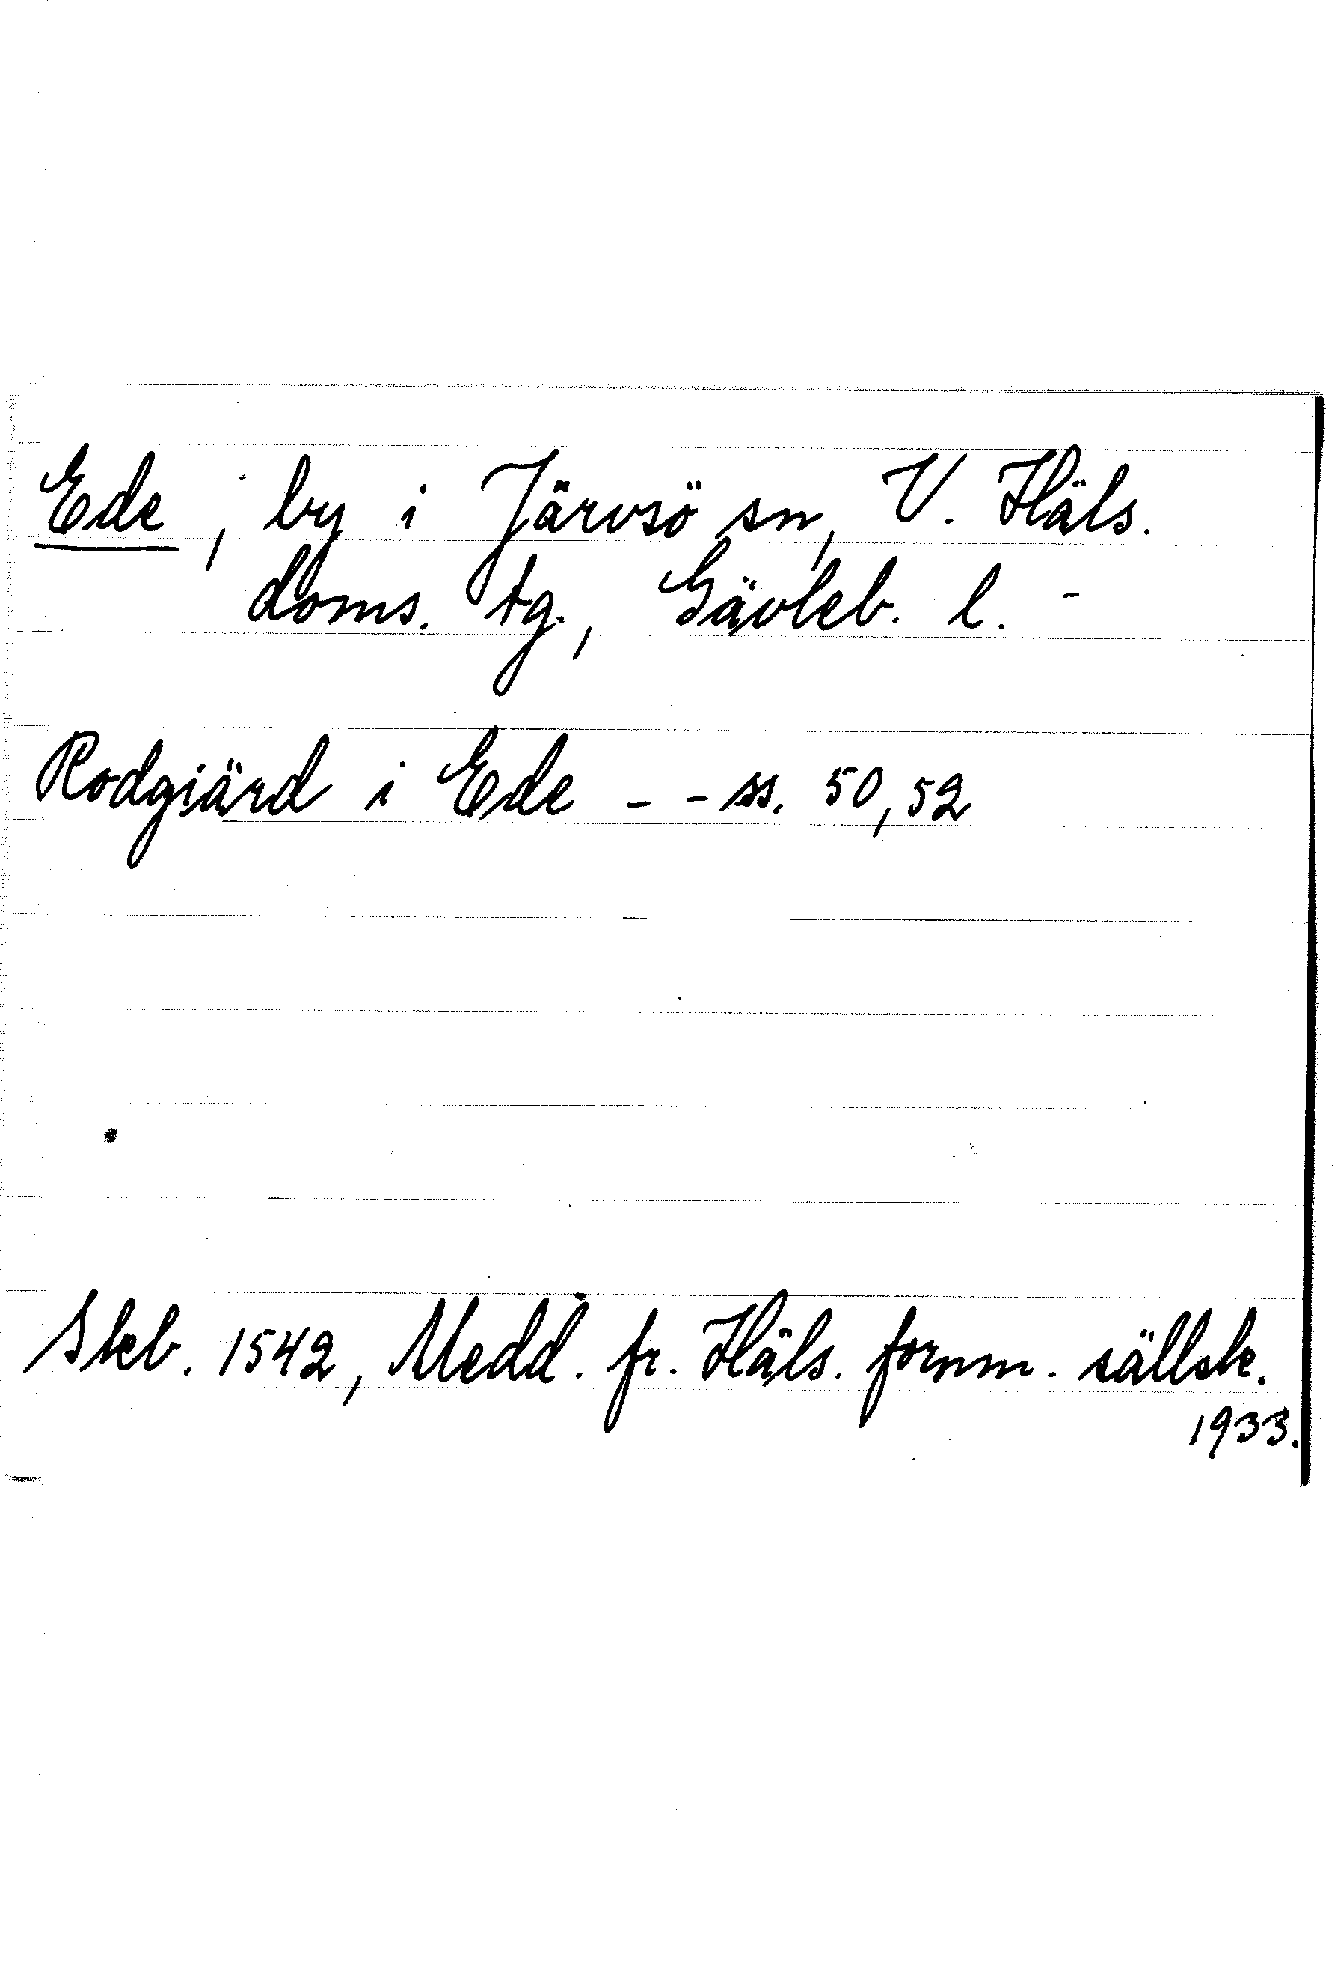 Ede, by i Järvsö sn, V. Häls.
doms. tg., Gävleb. l. -
Rodgiärd i Ede - - ss. 50, 52
Skb. 1542, Medd. fr. Häls. fornm. sällsk.
1933.